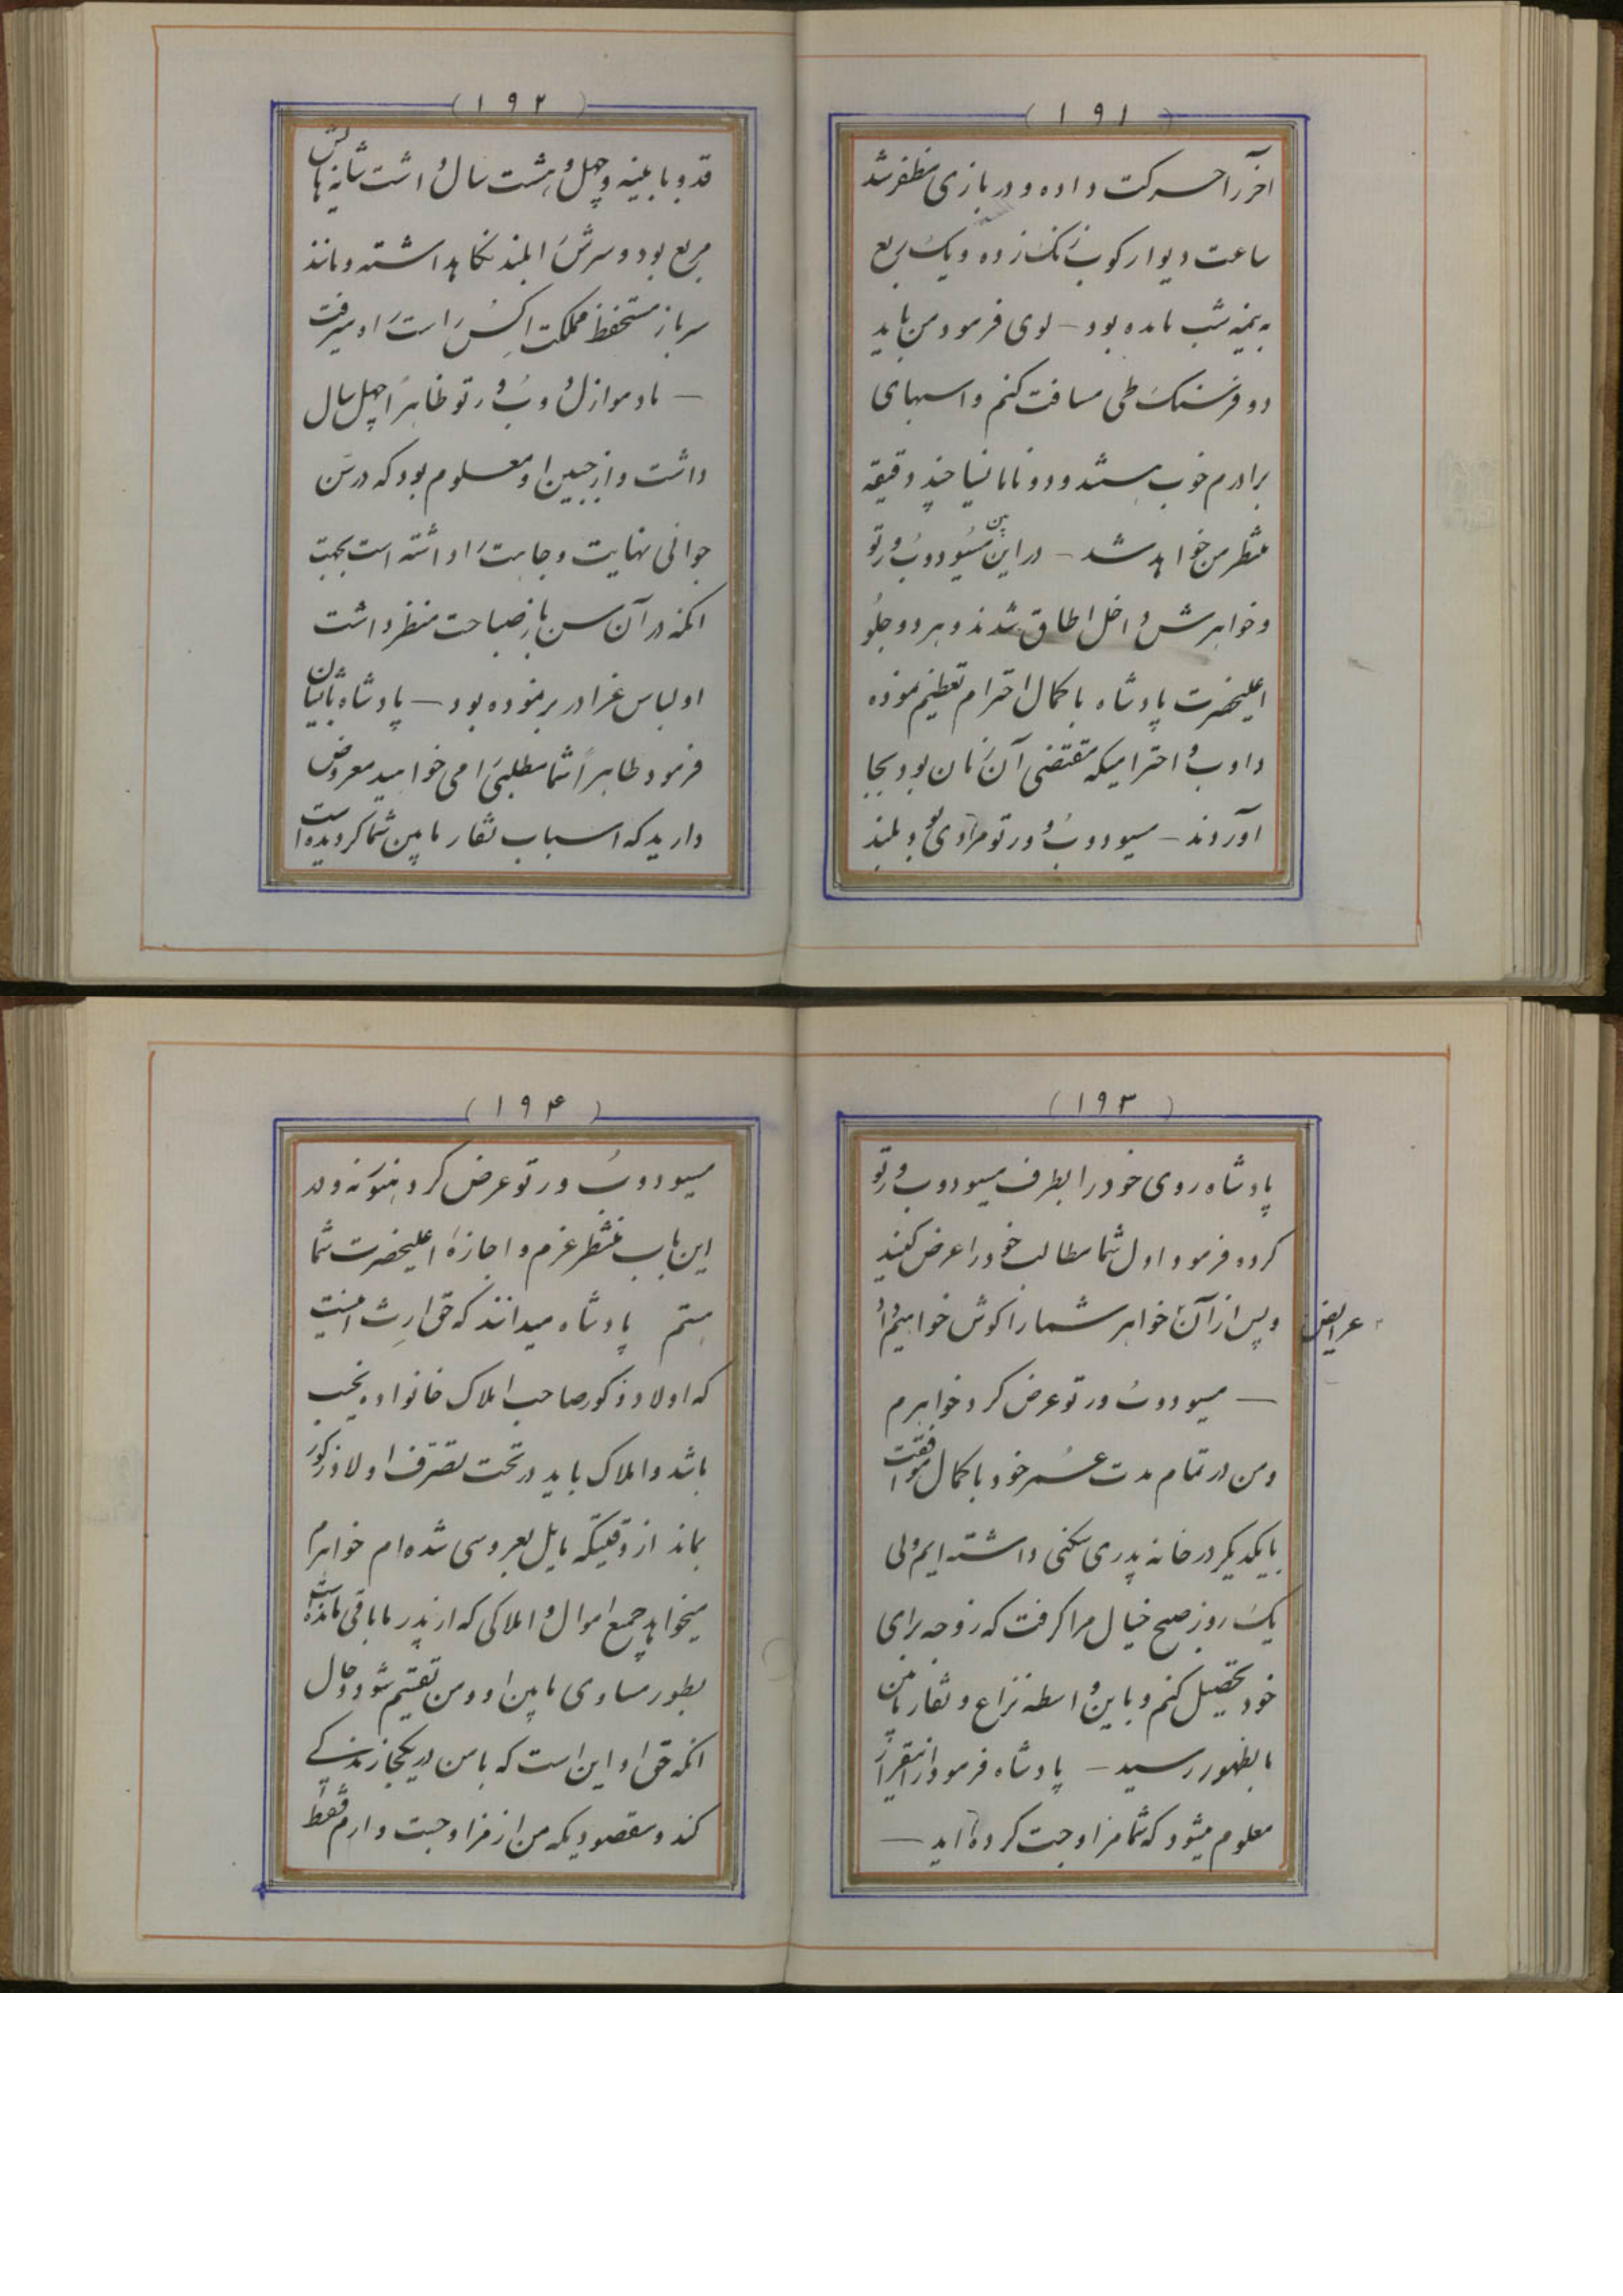 (۱۹۱)
آخر را حرکت داده و در بازی مظفر شد
ساعت دیوار کوب زنک زده و یک ربع
به نیمه شب مانده بود — لوی فرمود من باید
دو فرسنک طی مسافت کنم و اسبهای
برادرم خوب هستند و دونا مانیا چند دقیقه
منتظر من خواهد شد — در این بین مسیو دوبُ ورتو
و خواهرش داخل اطاق شدند و هر دو جلو
اعلیحضرت پادشاه با کمال احترام تعظیم نموده
و ادب و احترامیکه مقتضی آن زمان بود بجا
آوردند — مسیو دوبُ ورتو مردی بود بلند
(۱۹۲)
قد و با بنیه و چهل و هشت سال داشت شانه هایش
مربع بود و سرش را بلند نکاهداشته و مانند
سرباز مستحفظ مملکت اکس راست راه میرفت
— مادموازل دوبُ ورتو ظاهراً چهل سال
داشت و از جبین او معلوم بود که در سن
جوانی نهایت وجاهت را داشته است بجهت
انکه در آن سن باز صباحت منظر داشت
او لباس عزا در بر نموده بود — پادشاه بایشان
فرمود ظاهراً شما مطلبی را می خواهید معروض
دارید که اسباب نقار مابین شما کردیده است
(۱۹۳)
پادشاه روی خود را بطرف مسیو دوبُ ورتو
کرده فرمود اول شما مطالب خود را عرض کنید
و پس از آن عرایض خواهر شما را کوش خواهیم داد
— مسیو دوبُ ورتو عرض کرد خواهرم
و من در تمام مدت عمر خود با کمال موافقت
با یکدیکر در خانه پدری سکنی داشته ایم ولی
یک روز صبح خیال مرا کرفت که زوجه برای
خود تحصیل کنم و باین واسطه نزاع و نقار مابین
ما بظهور رسید — پادشاه فرمود از اینقرار
معلوم میشود که شما مزاوجت کرده اید —
(۱۹۴)
مسیو دوبُ ورتو عرض کرد هنوز نه و در
این باب منتظر عزم و اجازهٔ اعلیحضرت شما
هستم پادشاه میدانند که حق ارث اینست
که اولاد ذکور صاحب املاک خانواده نجیب
باشد و املاک باید در تحت تصرف اولاد ذکور
بماند از وقتیکه مایل بعروسی شده ام خواهرم
میخواهد جمیع اموال و املاکی که از پدر ما باقی مانده است
بطور مساوی مابین او و من تقسیم شود و حال
انکه حق او این است که با من در یکجا زندکی
کند و مقصودیکه من از مزاوجت دارم فقط